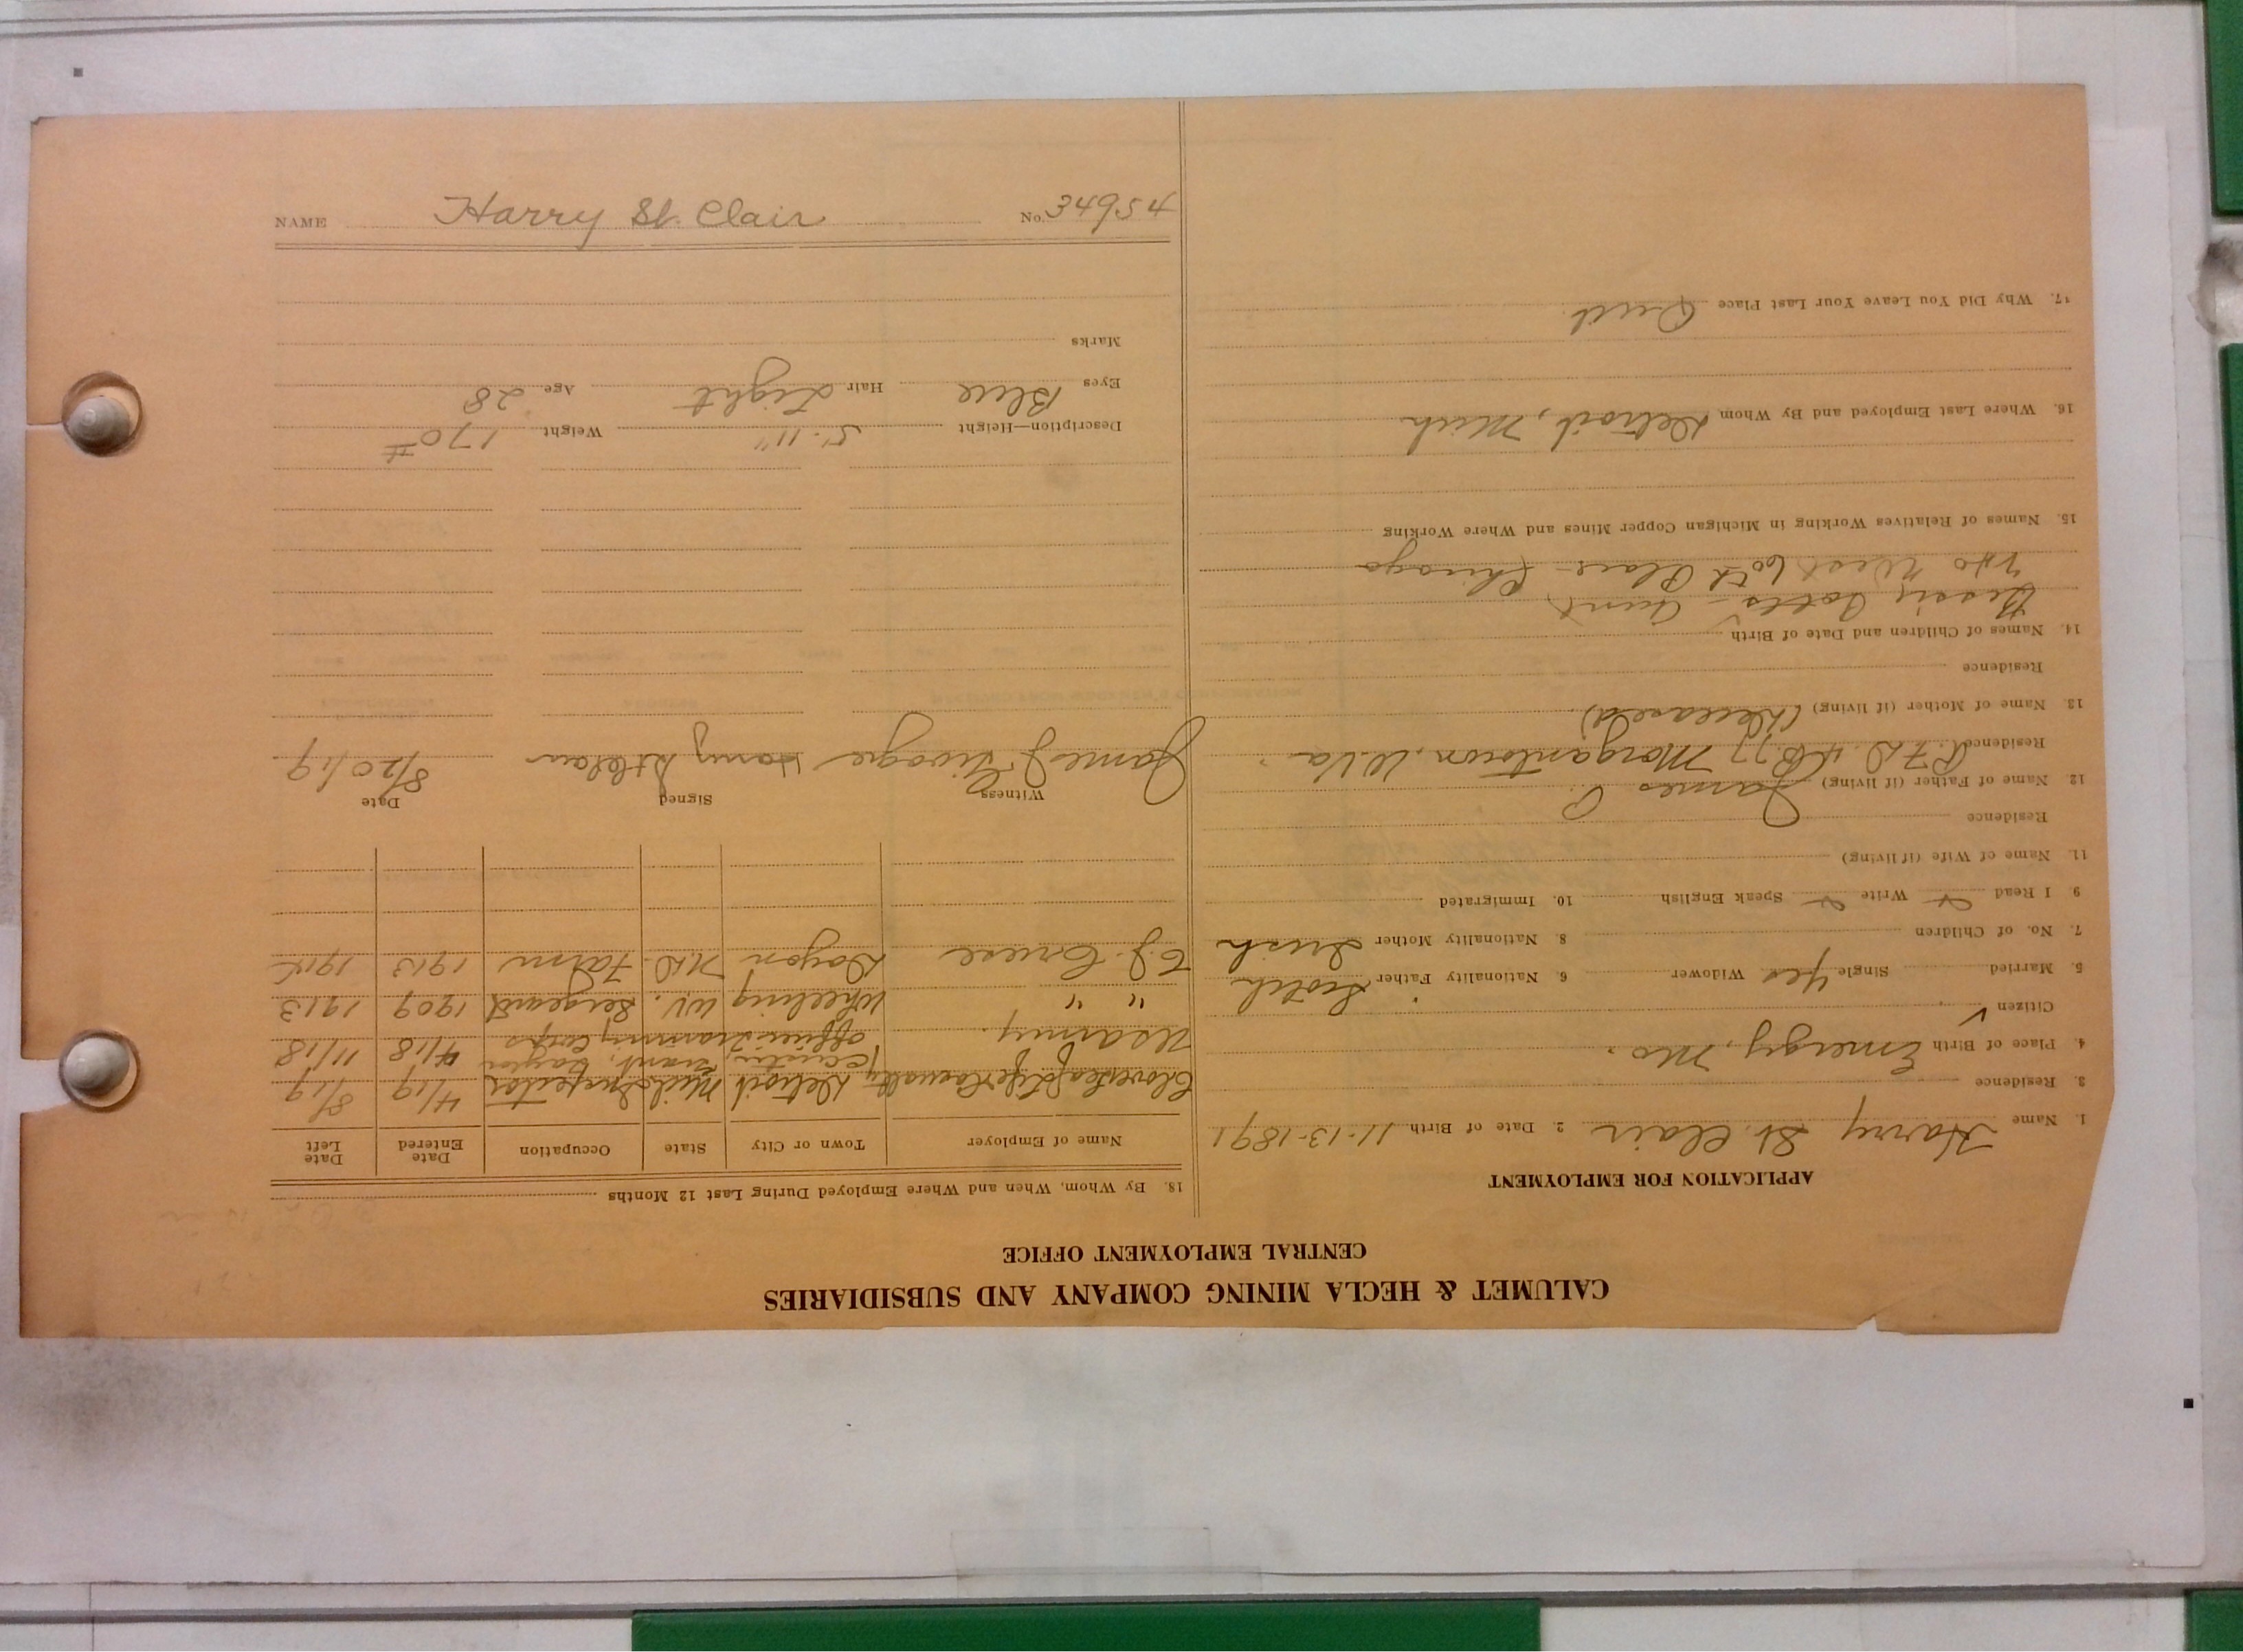 CALUMET & HECLA MINING COMPANY AND SUBSIDIARIES
CENTRAL EMPLOYMENT OFFICE
APPLICATION FOR EMPLOYMENT
1. Name Harry St. Clair 2. Date of Birth 11-13-1891
3. Residence
4. Place of Birth Emergy, Mo.
Citizen ✓
5. Married Single yes Widower 6. Nationality Father Scotch
7. No. of Children 8. Nationality Mother Irish
9. I Read Write Speak English 10. Immigrated
11. Name of Wife (if living)
Residence
12. Name of Father (if living) James P.
Residence R.F.D. 4 B. 77 Morgantown, W.Va.
13. Name of Mother (if living) (Deceased)
Residence
14. Names of Children and Date of Birth
Bessie - Aunt
West 60th Place - Chicago
15. Names of Relatives Working in Michigan Copper Mines and Where Working
16. Where Last Employed and By Whom Detroit, Mich
17. Why Did You Leave Your Last Place Quit
18. By Whom, When and Where Employed During Last 12 Months
Name of Employer Town or City State Occupation Date Entered Date Left
Detroit Mich Inspector 4/19 8/19
U S Army. Officers Training Corps 4/18 11/18
" " Wheeling W.V. Sergeant 1909 1913
Dayon N.D. Farm 1913 1915
Witness Signed Date
James J Harry St Clair 8/20/19
Description—Height 5' 11" Weight 170#
Eyes Blue Hair Light Age 28
Marks
NAME Harry St. Clair No. 34954